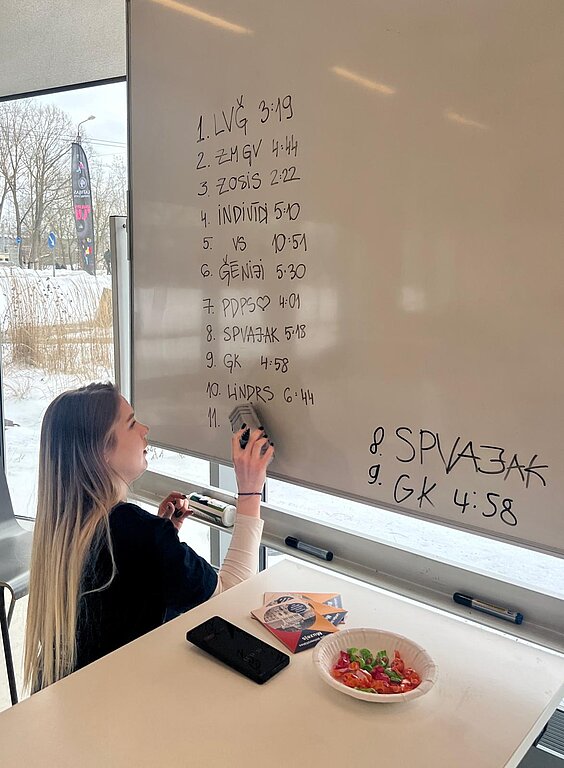 1. LVĢ 3:19
2. ZMGV 4:44
3. ZOSIS 2:22
4. INDIVĪDI 5:10
5. VS 10:51
6. ĢĒNIJI 5:30
7. PDPS♡ 4:01
8. SPVAJAK 5:18
9. ĢK 4:58
10. LINDRS 6:44
11.
8. SPVAJAK
9. GK 4:58